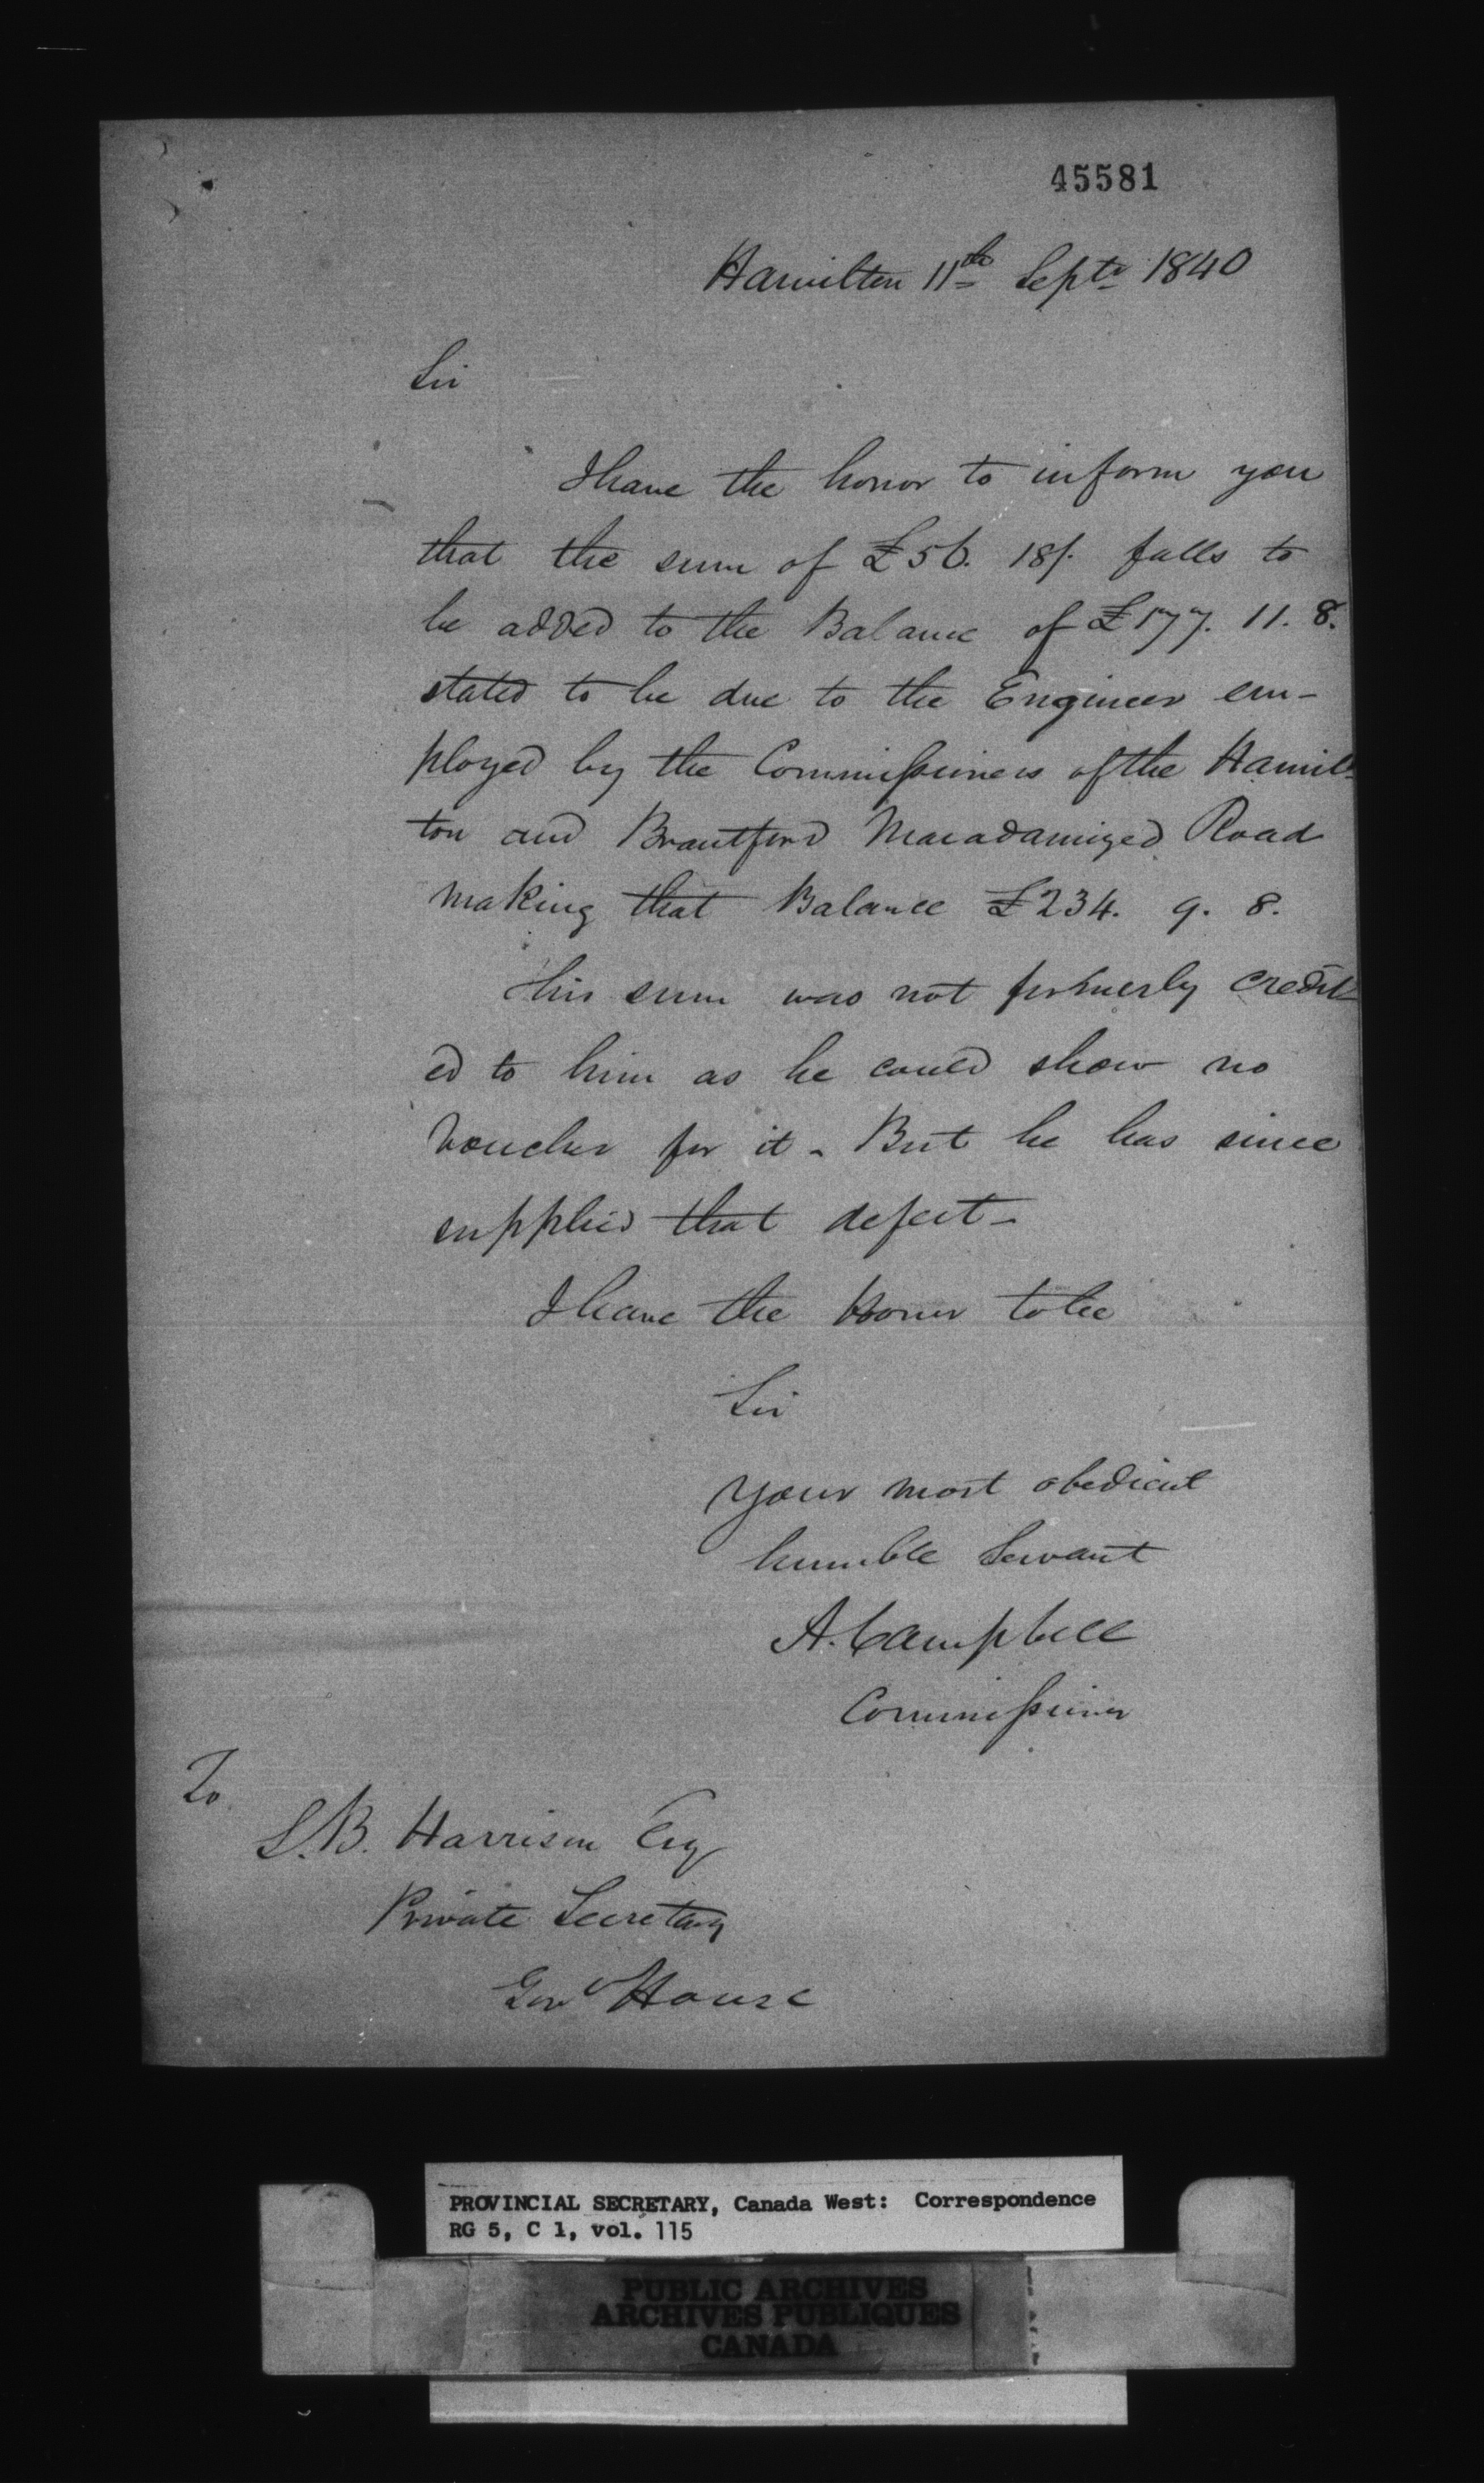 45581
Hamilton 11th Septr 1840
Sir
I have the honor to inform you
that the sum of £56. 18/. falls to
be added to the Balance of £177. 11. 8.
stated to be due to the Engineer em-
ployed by the Commissioners of the Hamil-
ton and Brantford Macadamized Road
making that Balance £234. 9. 8.
This sum was not formerly credit-
ed to him as he could show no
Voucher for it - But he has since
supplied that defect -
I have the Honor to be
Sir
Your most obedient
humble Servant
A. Campbell
Commissioner
To
S.B. Harrison Esq
Private Secretary
Govt House
PROVINCIAL SECRETARY, Canada West: Correspondence
RG 5, C 1, vol. 115
PUBLIC ARCHIVES
ARCHIVES PUBLIQUES
CANADA